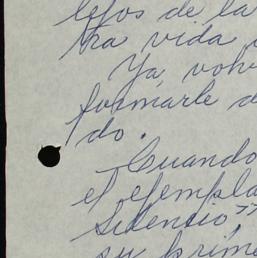 lejos de la
tra vida
Ya volv
formarle d
do.
Cuando
el ejempla
Silencio”
su prime